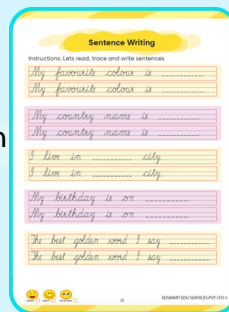 Sentence Writing
Instructions: Lets read, trace and write sentences
My favourite colour is __________
My favourite colour is __________
My country name is __________
My country name is __________
I live in __________ city.
I live in __________ city.
My birthday is on __________
My birthday is on __________
The best golden word I say __________
The best golden word I say __________
EEISMART EDU-SERVICES PVT LTD